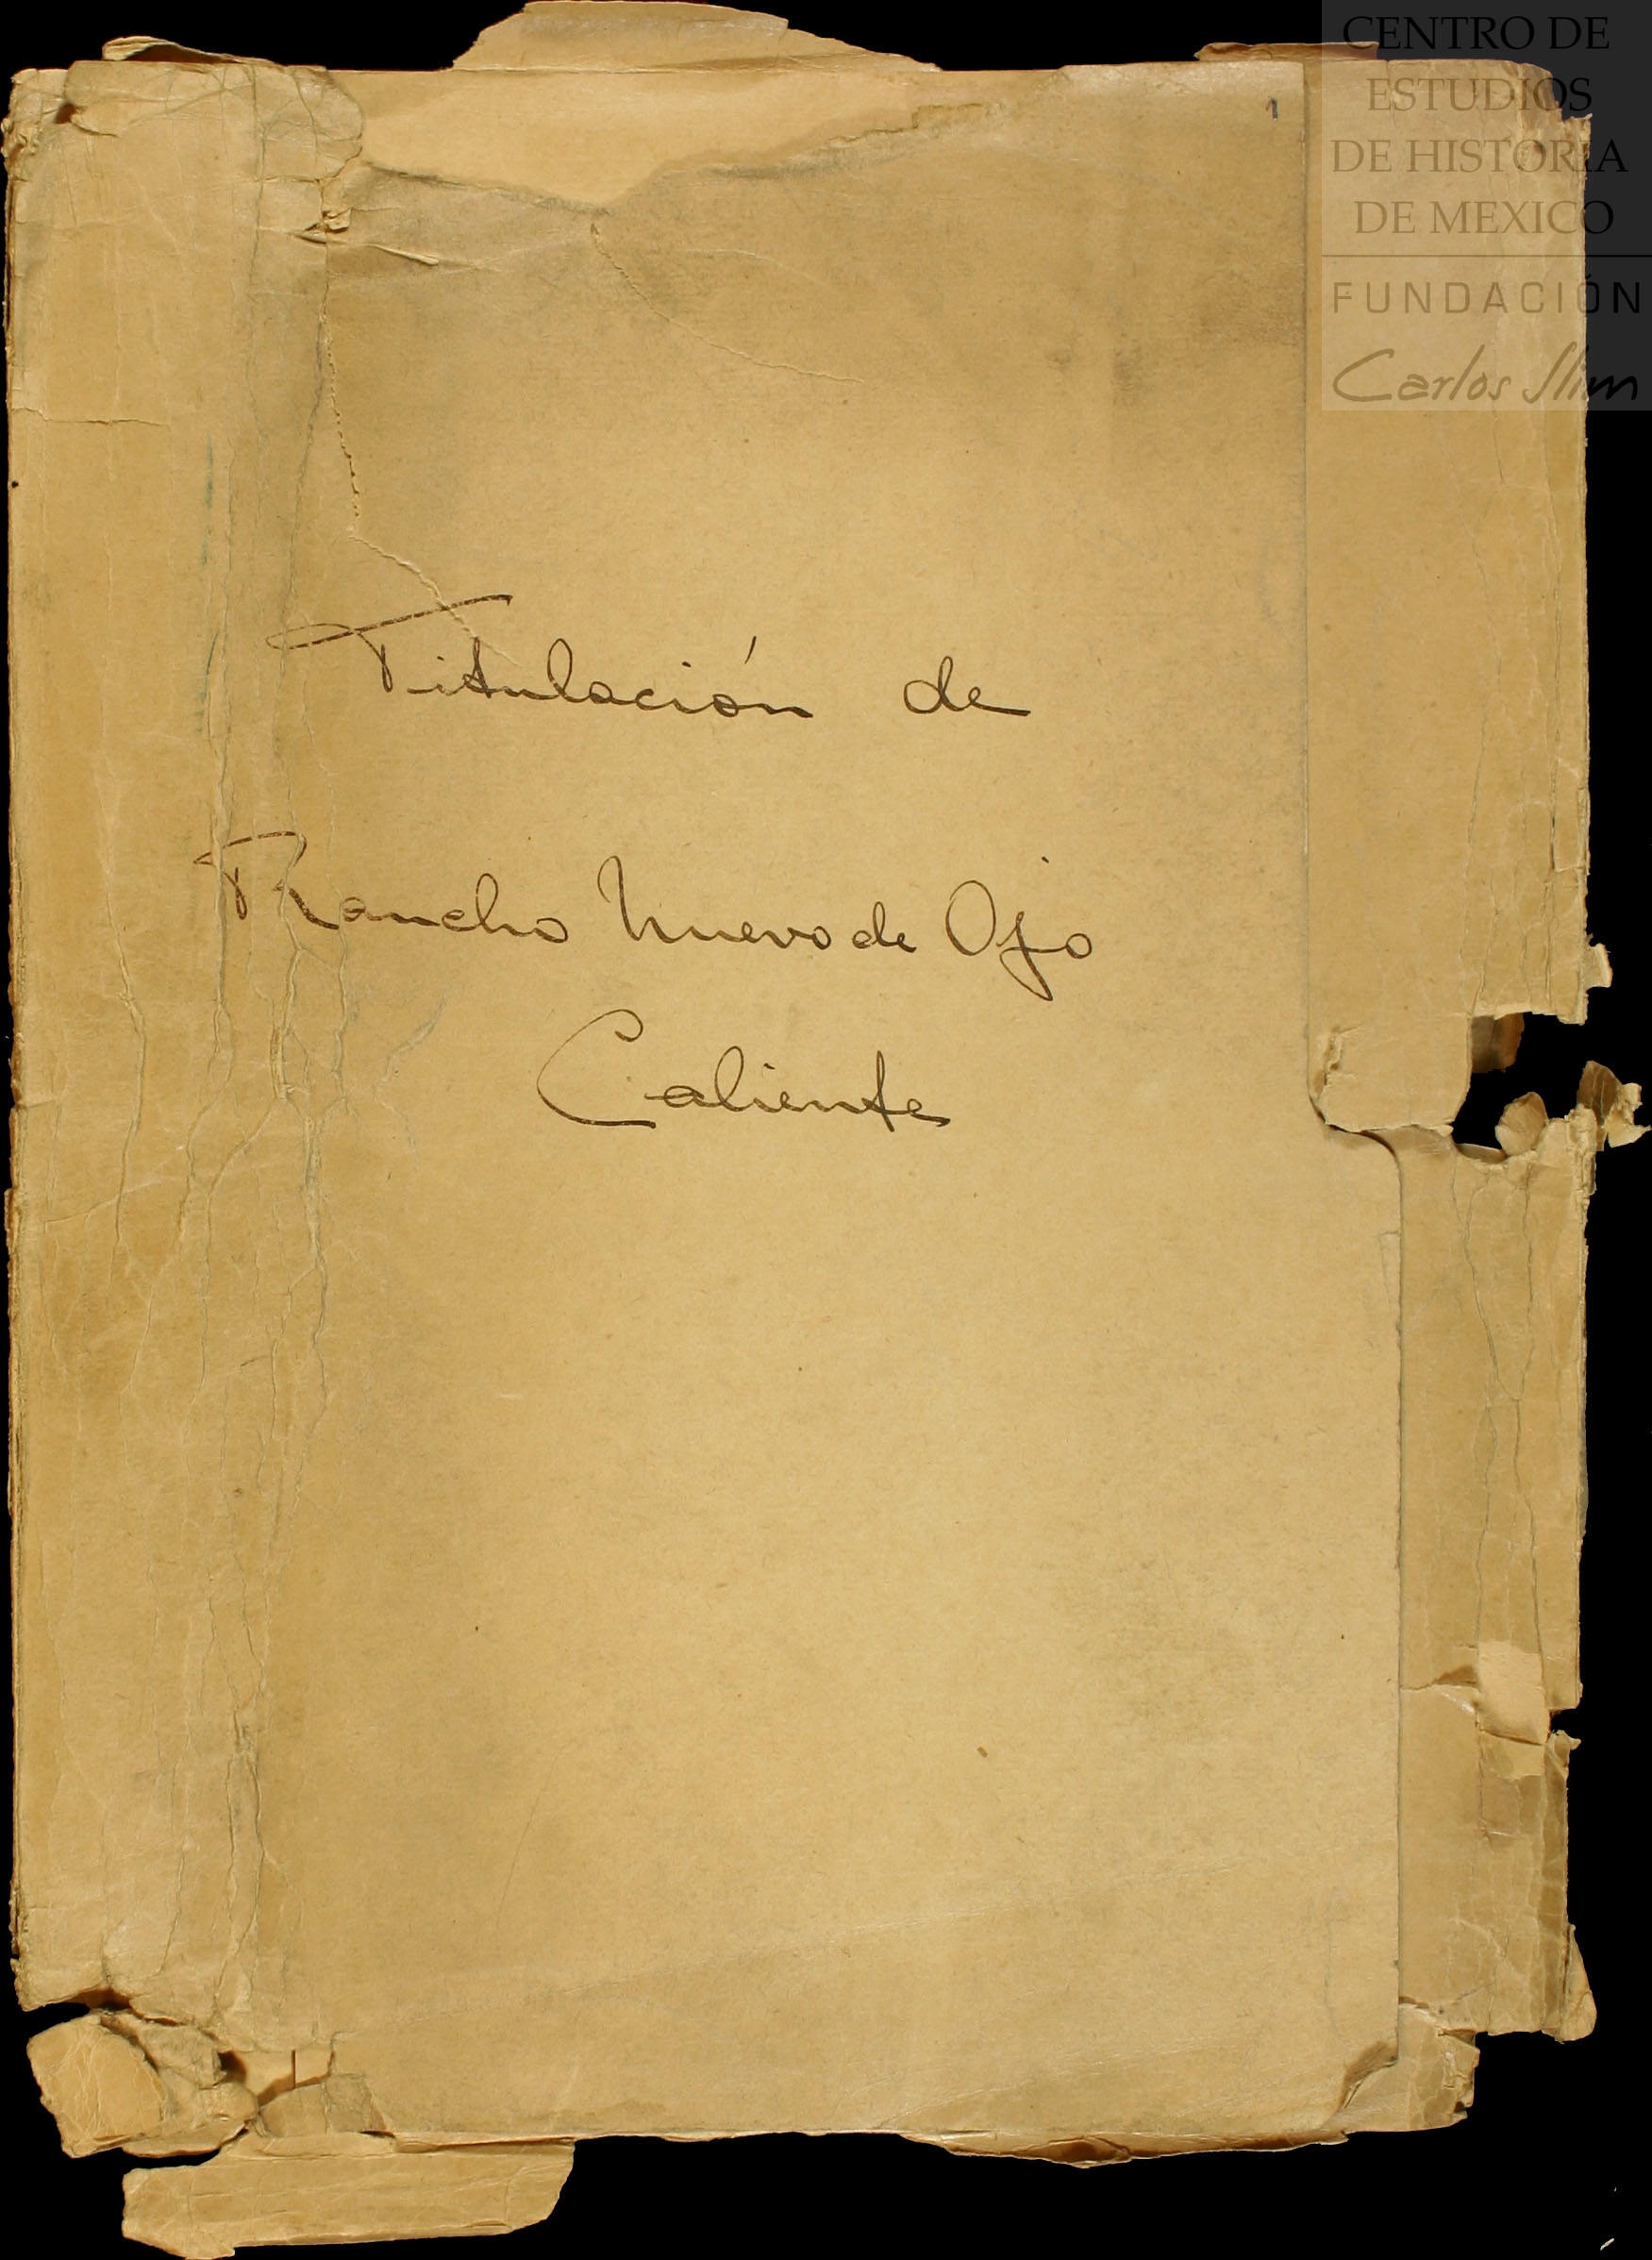 CENTRO DE
ESTUDIOS
DE HISTORIA
DE MEXICO
FUNDACIÓN
Carlos Slim
1
Titulación de
Rancho Nuevo de Ojo
Caliente